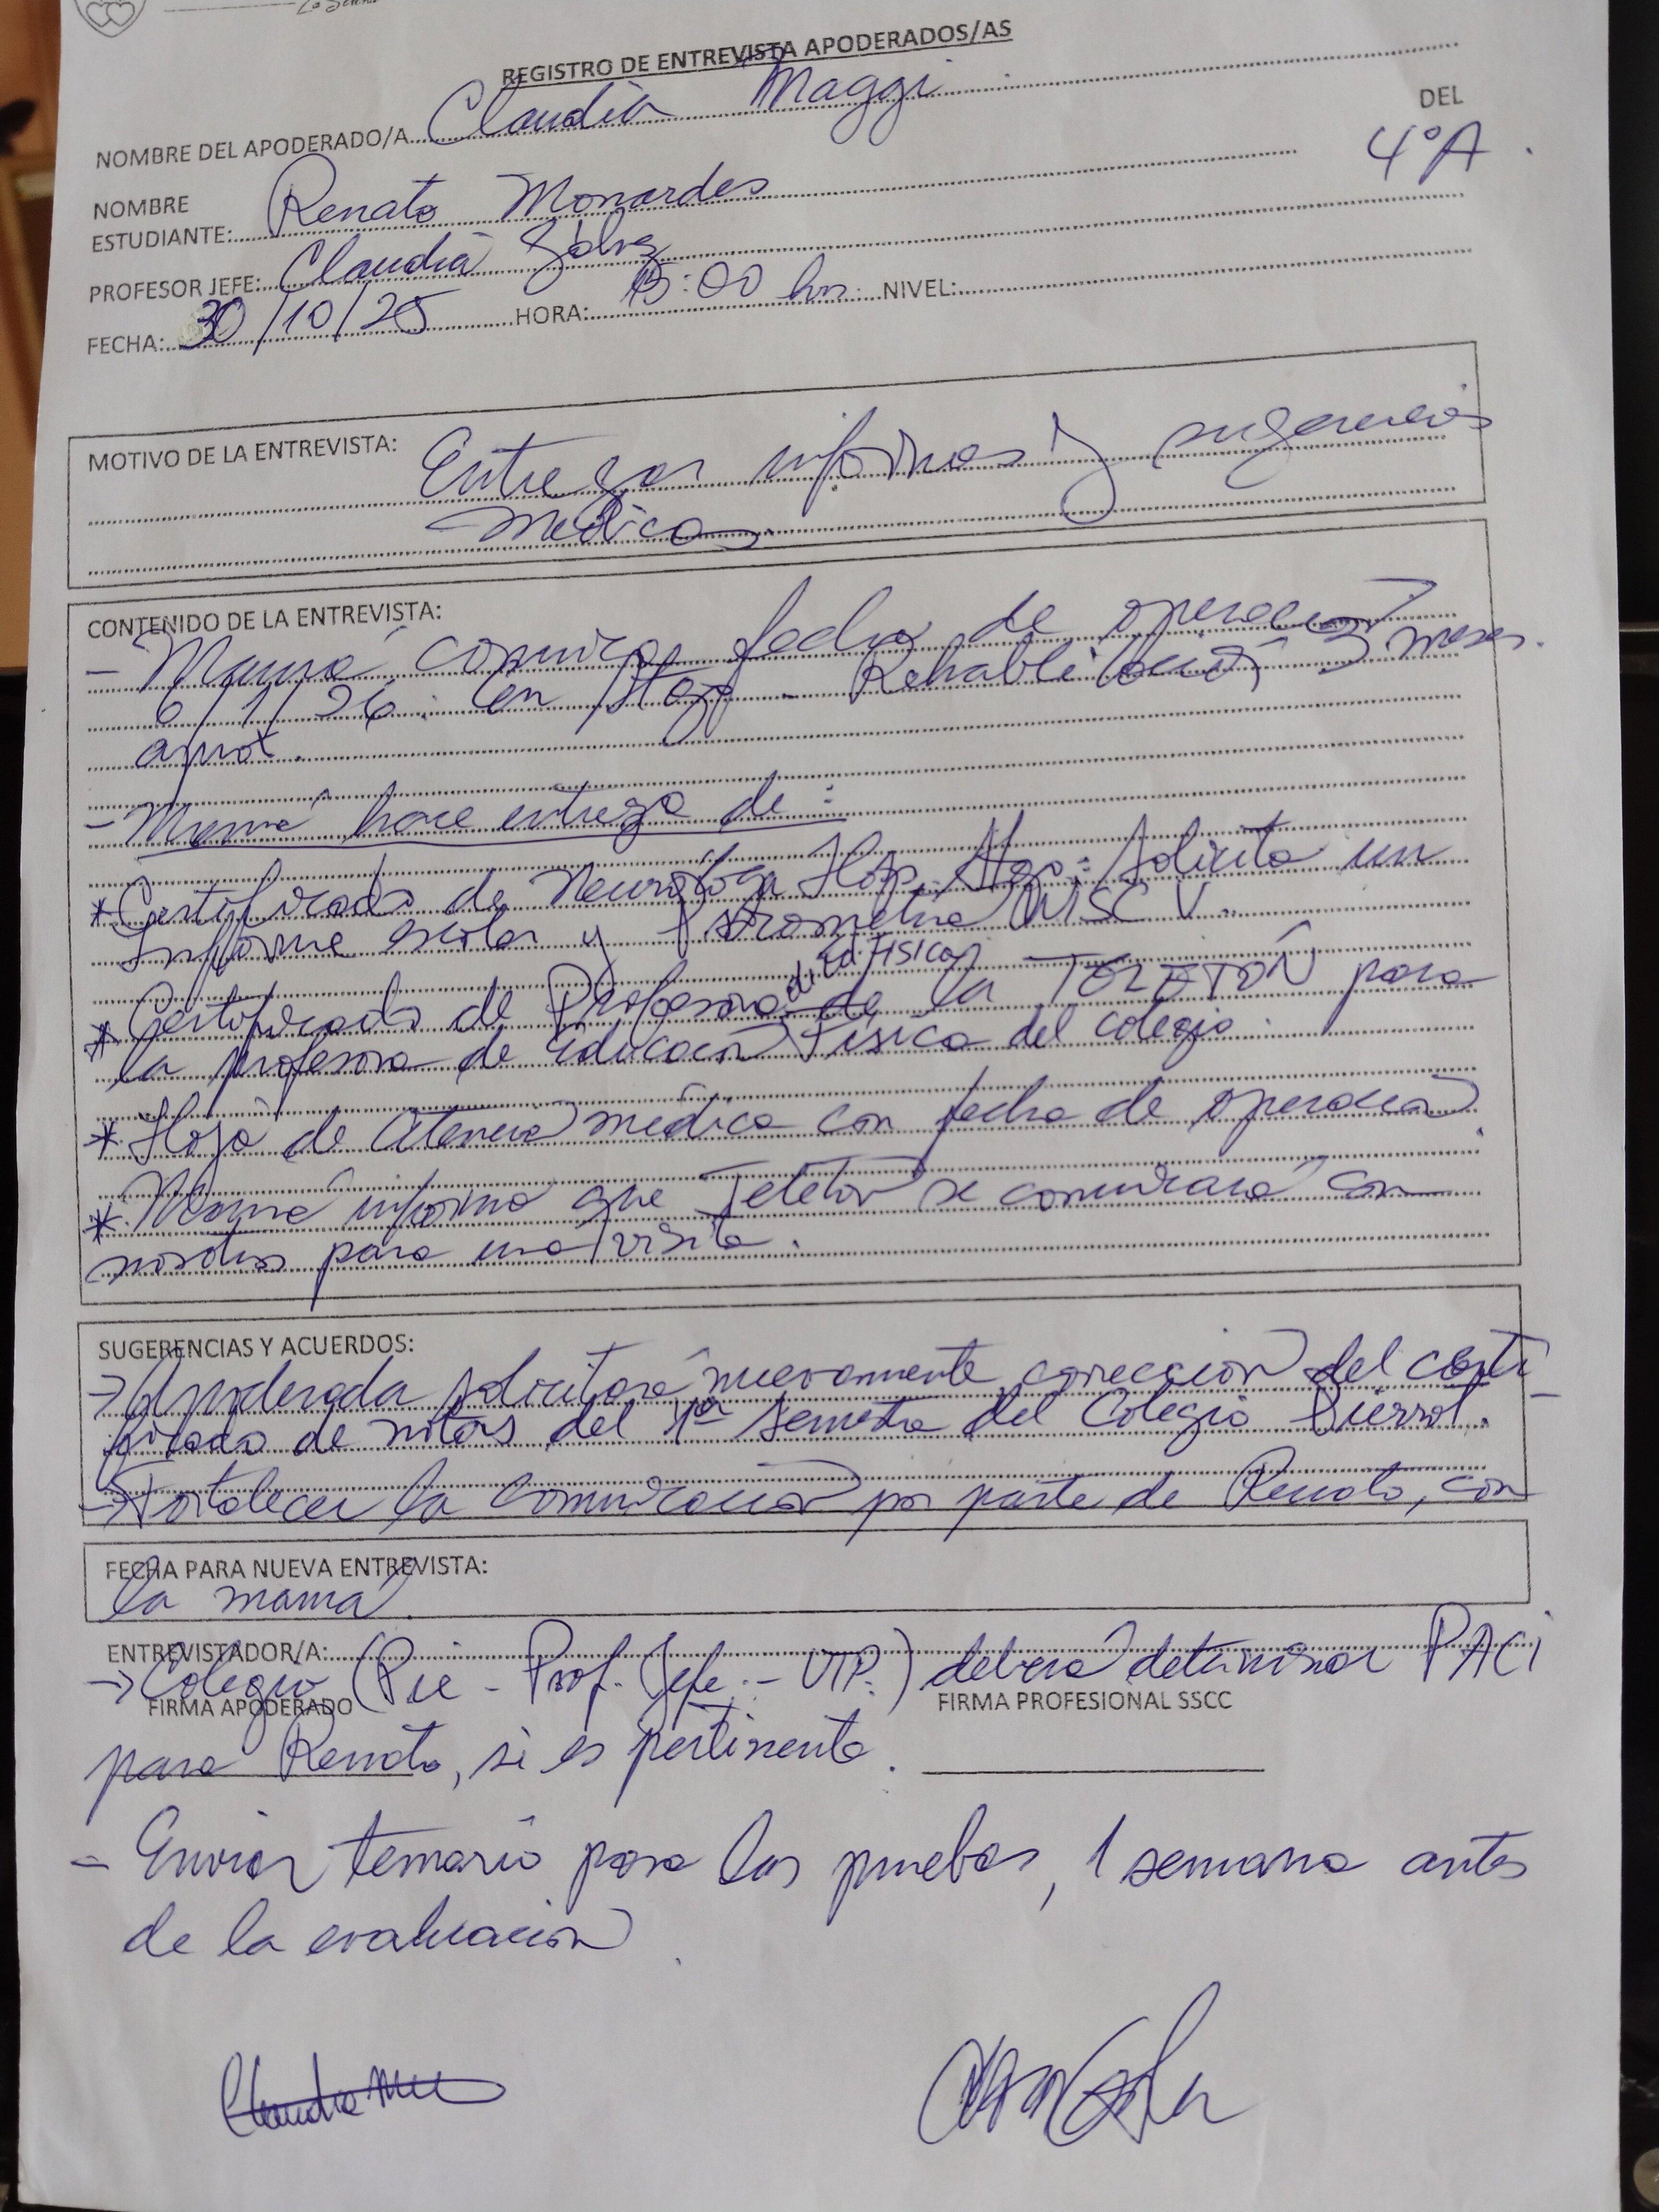 La Serena
REGISTRO DE ENTREVISTA APODERADOS/AS
NOMBRE DEL APODERADO/A Claudia Maggi
DEL
NOMBRE
ESTUDIANTE: Renato Monardes 4°A.
PROFESOR JEFE: Claudia Gálvez
FECHA: 30/10/25 HORA: 15:00 hrs. NIVEL:
MOTIVO DE LA ENTREVISTA: Entregar informes y sugerencias
médicas.
CONTENIDO DE LA ENTREVISTA:
- Mamá comunica fecha de operación
6/1/26. En Stgo - Rehabilitación 3 meses
aprox.
- Mamá hace entrega de:
* Certificado de Neuróloga Hosp. Stgo: Solicita un
Informe escolar y Psicometría WISC V.
* Certificado de Profesora de Ed. FISICA de la TELETÓN para
la profesora de Educación Física del colegio.
* Hoja de Atención médica con fecha de operación.
* Mamá informa que Teletón se comunicará con
nosotros para una visita.
SUGERENCIAS Y ACUERDOS:
→ Apoderada solicitará nuevamente corrección del certi-
ficado de notas del 1er semestre del Colegio
→ Fortalecer la comunicación por parte de Renato, con
FECHA PARA NUEVA ENTREVISTA:
la mamá.
ENTREVISTADOR/A:
→ Colegio (Pie - Prof. Jefe - UTP.) deberá determinar PACI
FIRMA APODERADO FIRMA PROFESIONAL SSCC
para Renato, si es pertinente.
- Enviar temario para las pruebas, 1 semana antes
de la evaluación.